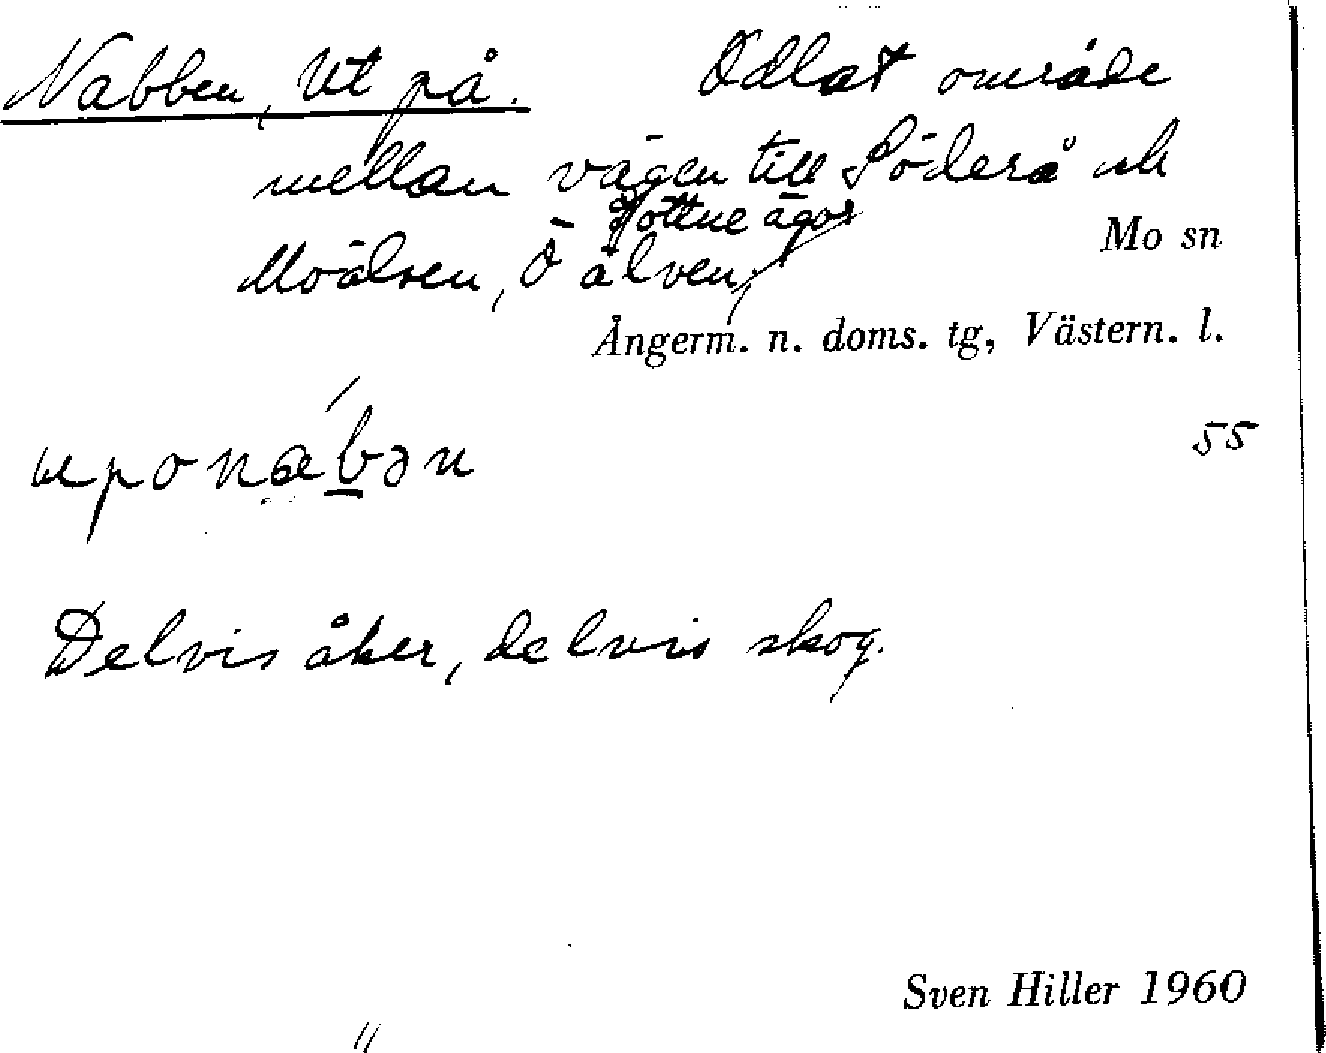 Nabben, Ut på. Odlat område
mellan vägen till Söderå och
Gottne ägor
Moälven, Ö älven,
Mo sn
Ångerm. n. doms. tg, Västern. l.
55
uponabən
Delvis åker, delvis skog.
Sven Hiller 1960